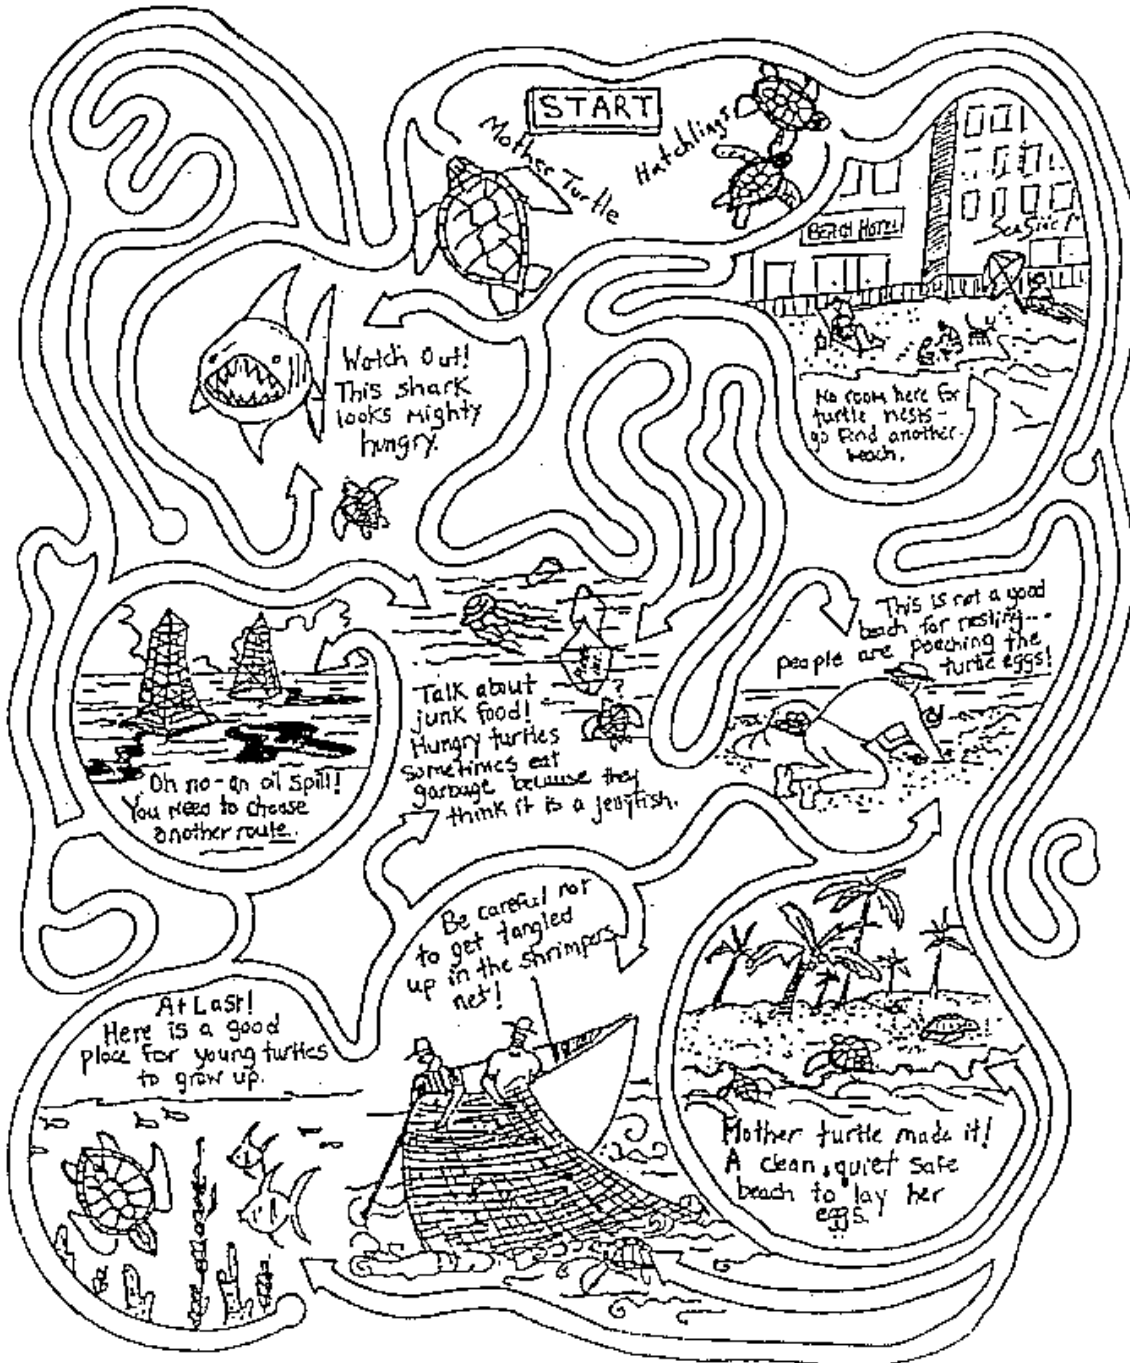 START
Mother Turtle
Hatchlings
BEACH HOTEL
SeaSide
Watch Out!
This shark
looks mighty
hungry.
No room here for
turtle nests-
go find another
beach.
This is not a good
beach for nesting--
people are poaching the
turtle eggs!
Talk about
junk food!
Hungry turtles
sometimes eat
garbage because they
think it is a jellyfish.
Oh no-an oil spill!
You need to choose
another route.
Be careful not
to get tangled
up in the shrimpers
net!
At Last!
Here is a good
place for young turtles
to grow up.
Mother turtle made it!
A clean, quiet safe
beach to lay her
eggs.